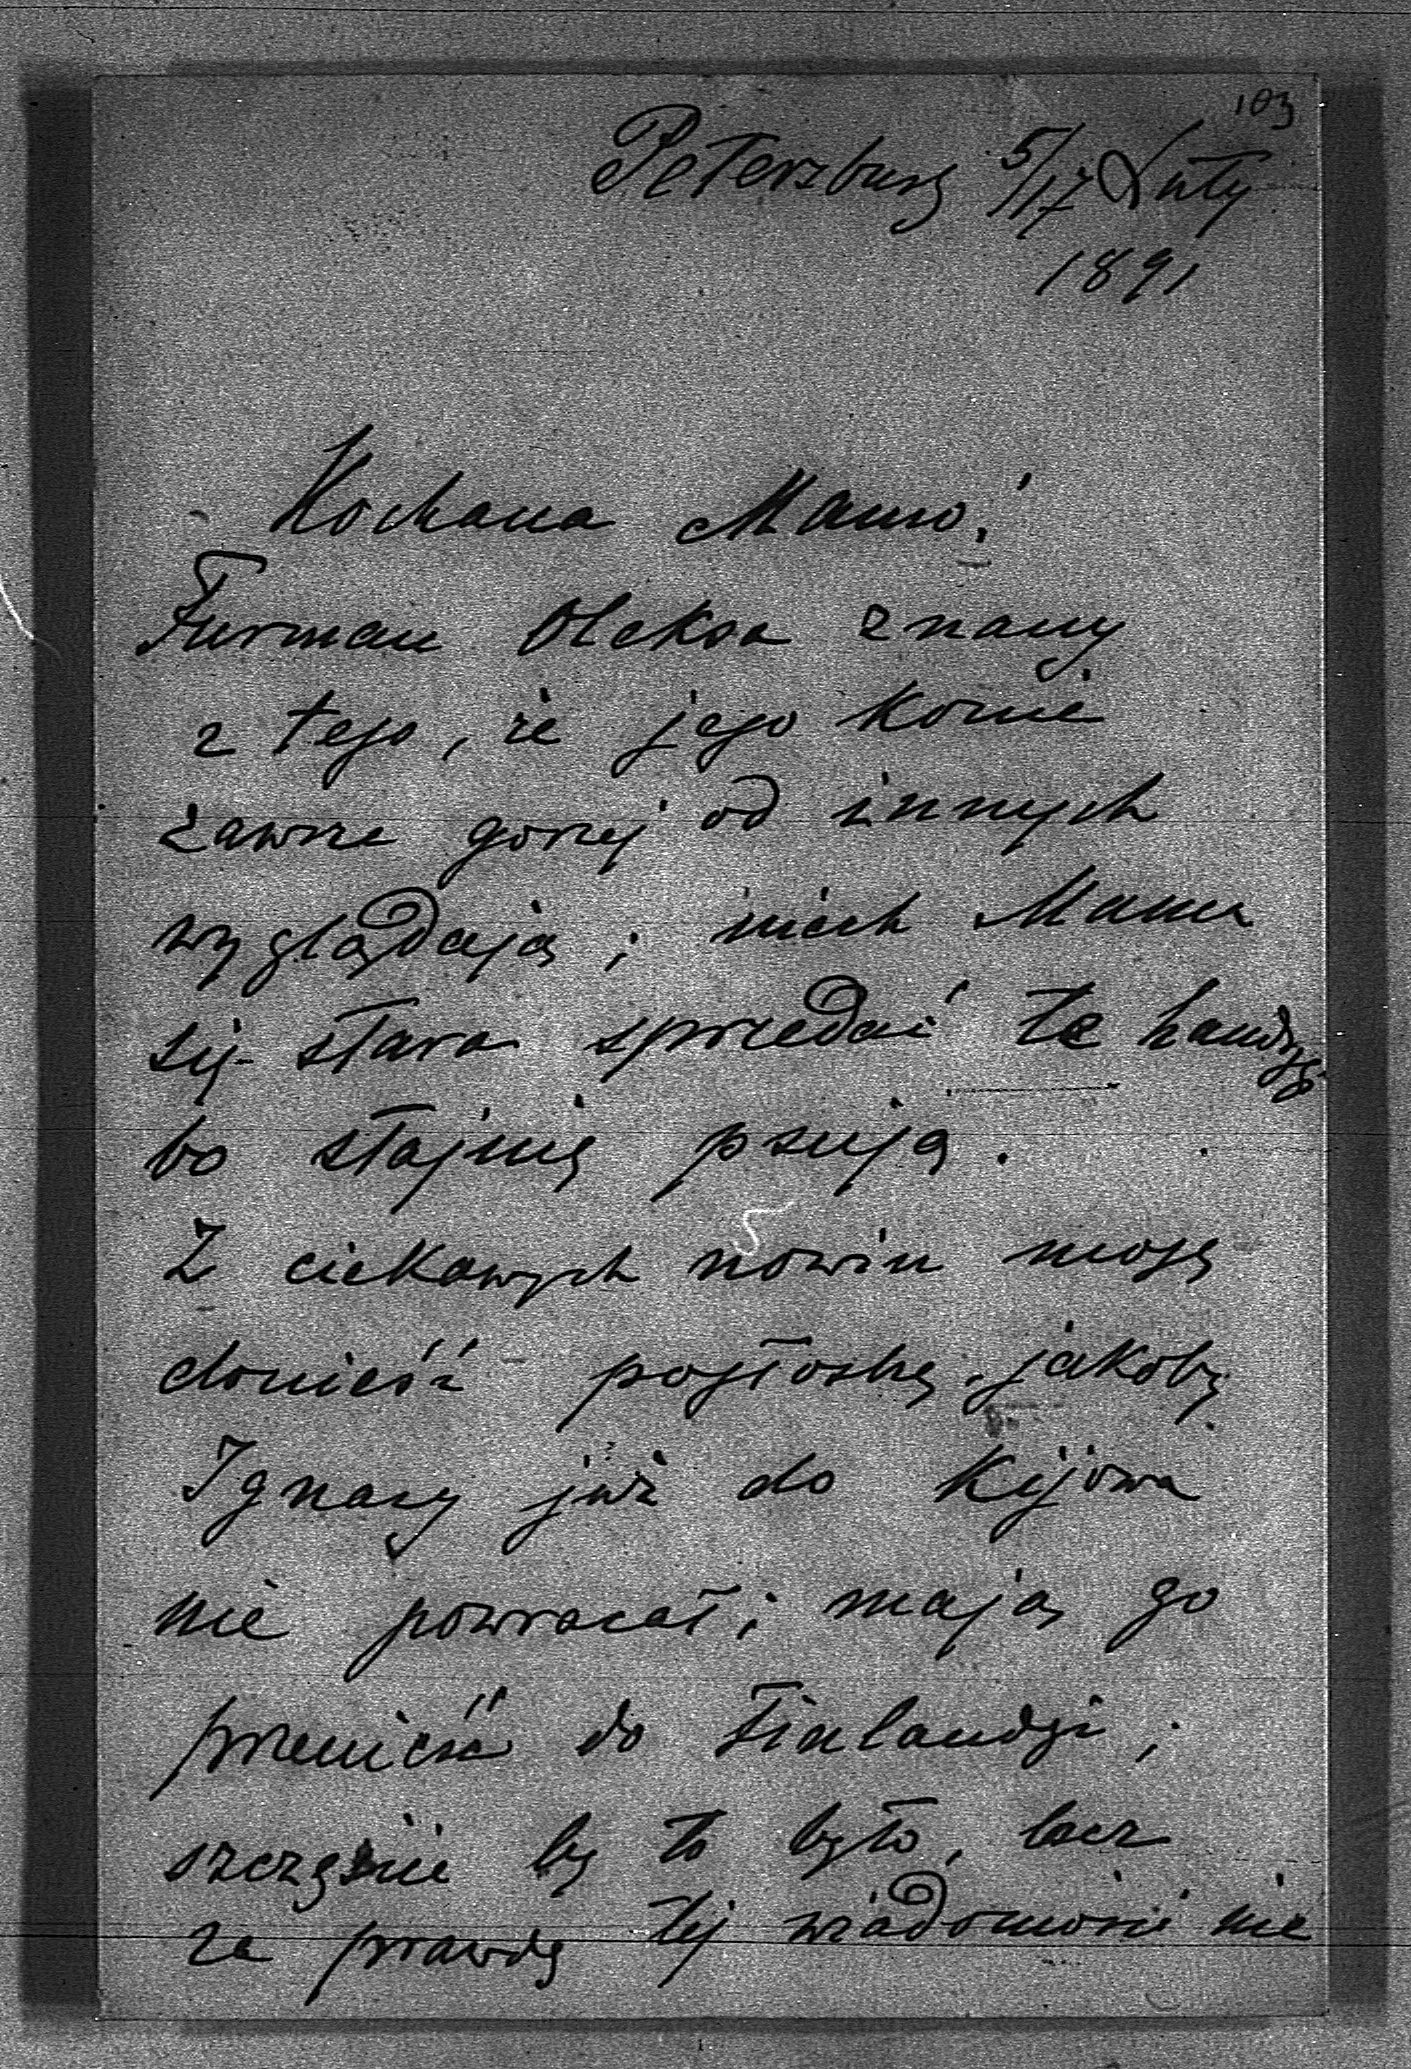 103
Peterzburg 5/17 Luty
1891
Kochana Mamo!
Furman Oleksa znany
z tego, że jego konie
zawsze gorzej od innych
wyglądają; niech Mama
się stara sprzedać te
bo stajnię psują.
Z ciekawych nowin mogę
donieść pogłoskę, jakoby
Ignacy już do Kijowa
nie powracał; mają go
przenieść do Finlandji;
szczęście by to było, lecz
za prawdę tej wiadomości nie